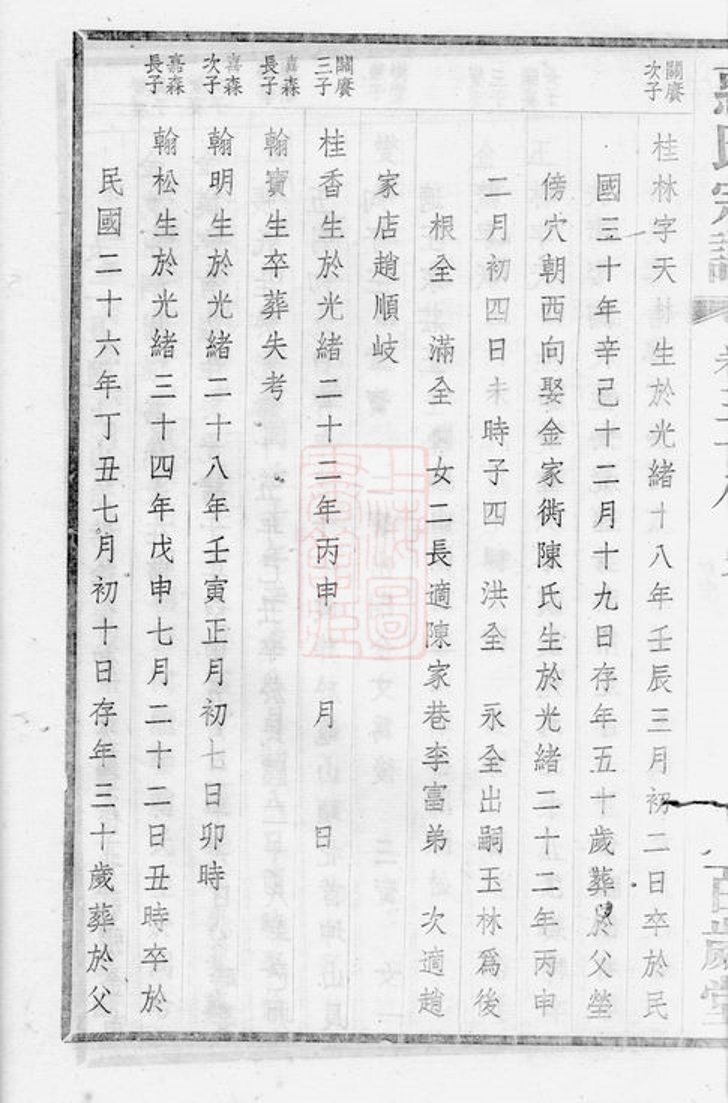 關賡次子
桂林字天 生於光緒十八年壬辰三月初二日卒於民
國三十年辛己十二月十九日存年五十歲葬於父塋
傍穴朝西向娶金家衖陳氏生於光緒二十二年丙申
二月初四日未時子四 洪全 永全出嗣玉林爲後
根全 滿全 女二長適陳家巷李富弟 次適趙
家店趙順岐
關賡三子
桂香生於光緒二十二年丙申 月 日
嘉森長子
翰寶生卒葬失考
嘉森次子
翰明生於光緒二十八年壬寅正月初七日卯時
嘉森長子
翰松生於光緒三十四年戊申七月二十二日丑時卒於
民國二十六年丁丑七月初十日存年三十歲葬於父